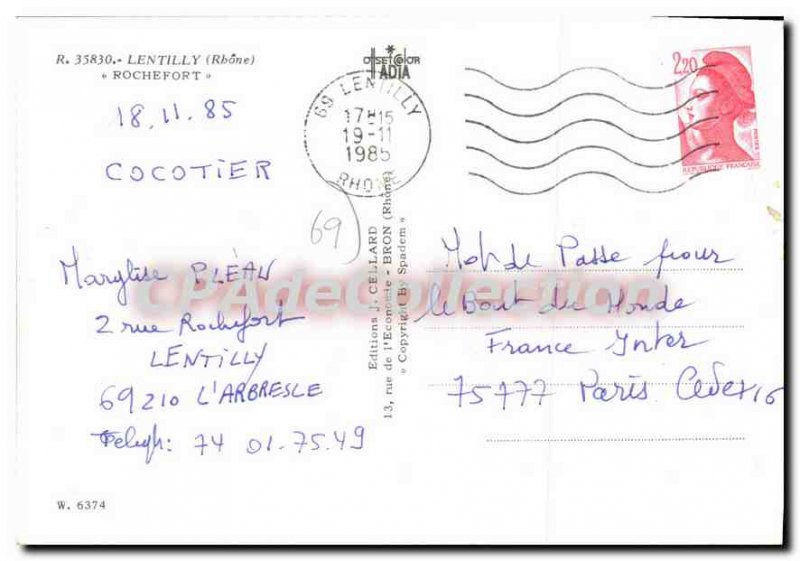 R. 35830.- LENTILLY (Rhône)
« ROCHEFORT »
18.11.85
COCOTIER
Marylise BLÉAN
2 rue Rochefort
LENTILLY
69210 L'ARBRESLE
Teleph: 74 01.75.49
W. 6374
OFFSET COLOR
ADIA
69 LENTILLY
17H15
19-11
1985
RHONE
69
Editions J. CELLARD
13, rue de l'Economie - BRON (Rhône)
« Copyright By Spadem »
2,20
REPUBLIQUE FRANÇAISE
Mot de Passe pour
le Bout du Monde
France Inter
75777 Paris Cedex 16
CPAdeCollection